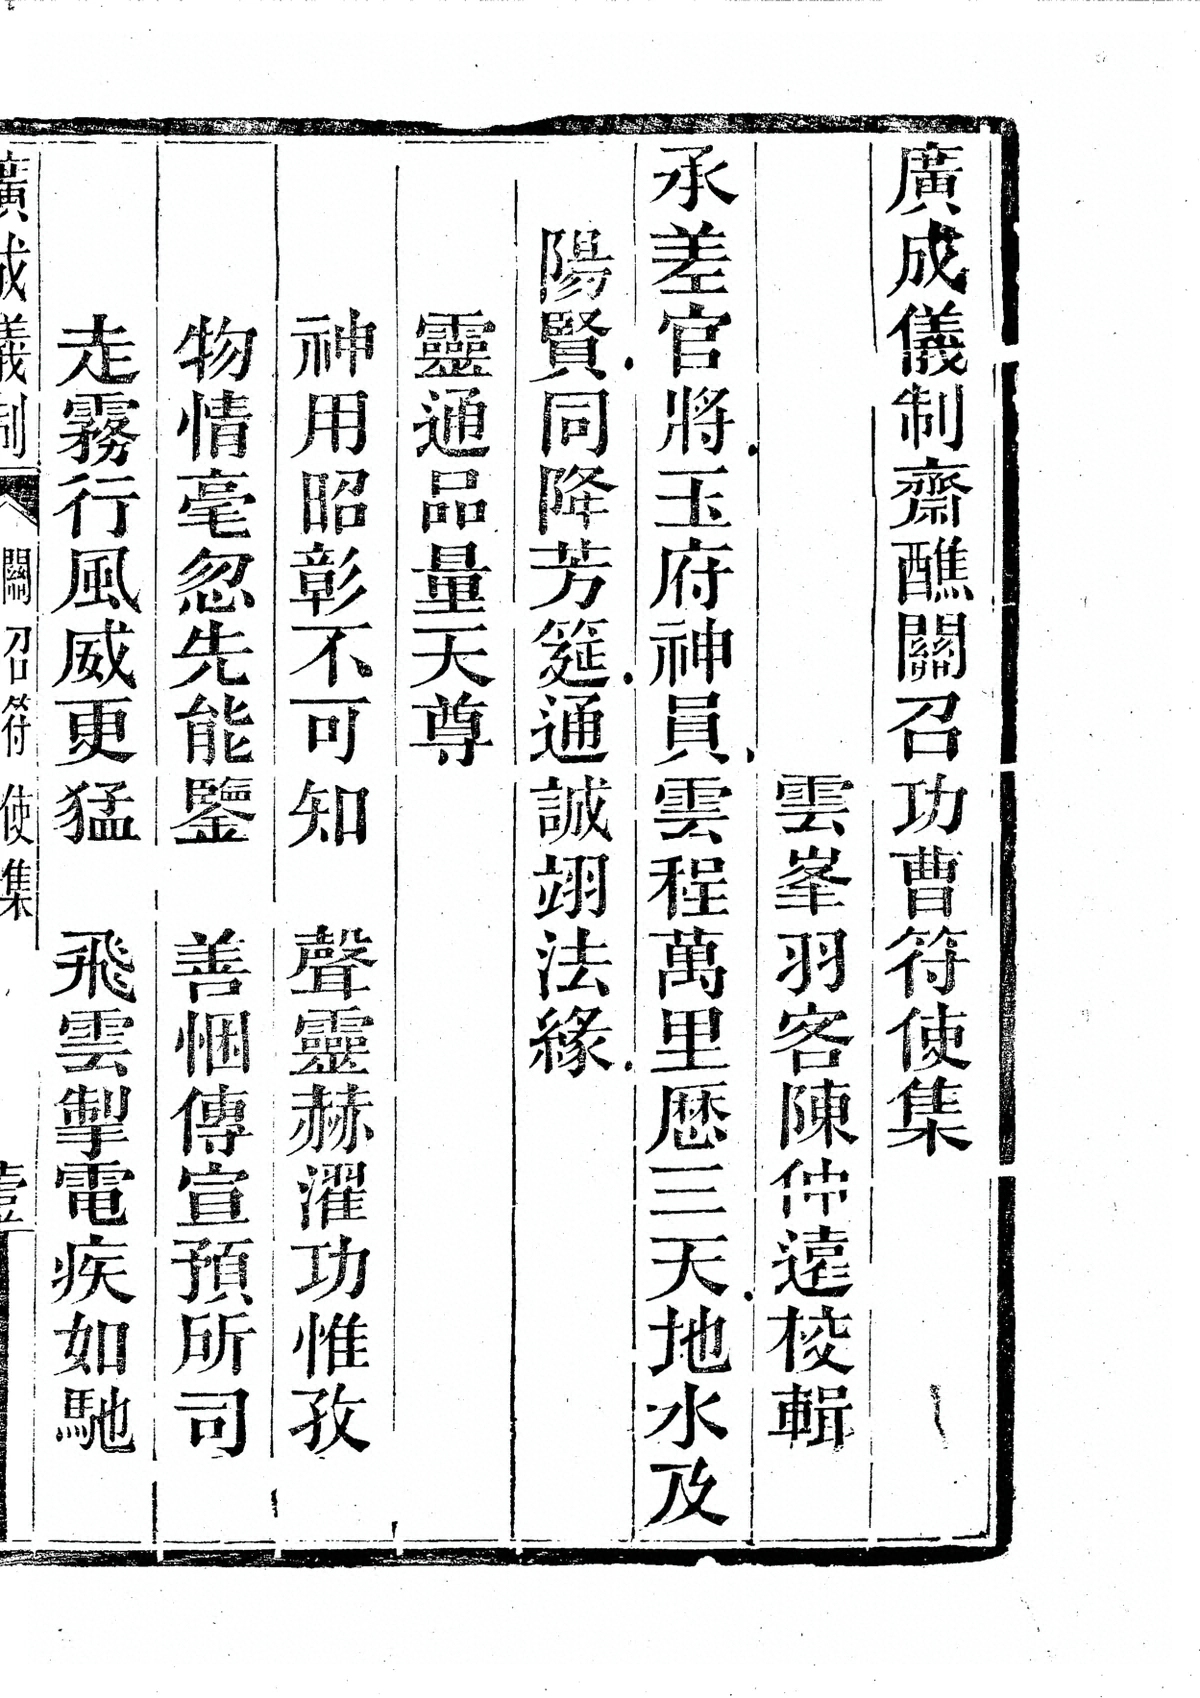 廣成儀制齋醮關召功曹符使集
雲峯羽客陳仲遠校輯
承差官將玉府神員雲程萬里歷三天地水及
陽賢同降芳筵通誠翊法緣
靈通品量天尊
神用昭彰不可知　聲靈赫濯功惟孜
物情毫忽先能鑒　善悃傳宣預所司
走霧行風威更猛　飛雲掣電疾如馳
廣成儀制　關召符使集　壹